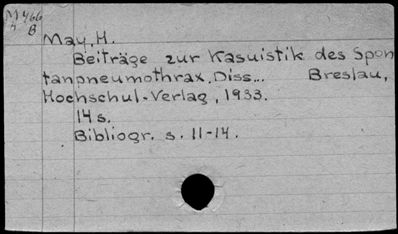 M466
B
May, H.
Beiträge zur Kasuistik des Spon
tanpneumothrax. Diss... Breslau,
Hochschul-Verlag, 1933.
14 s.
Bibliogr. s. 11-14.